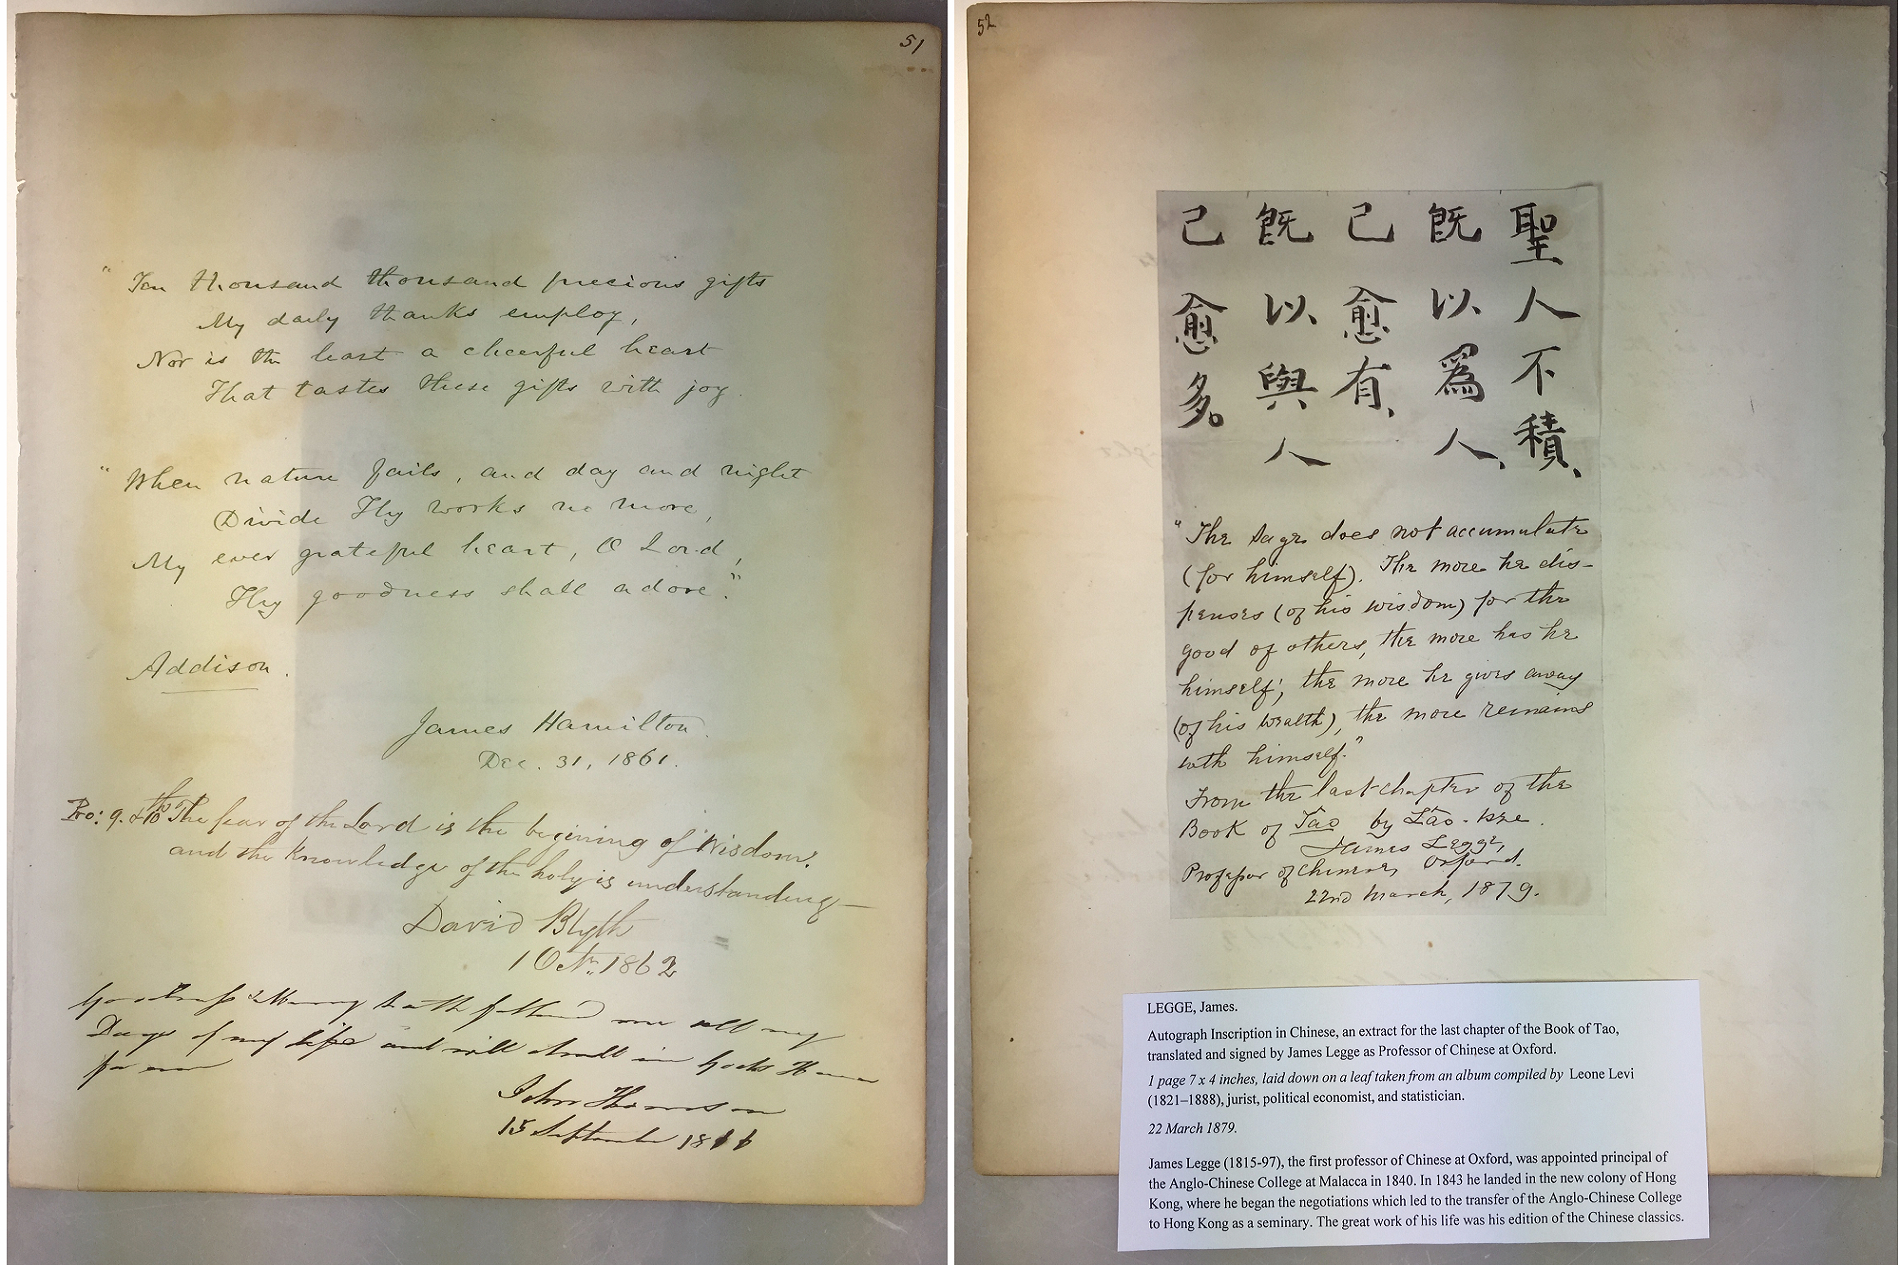 51
"Ten thousand thousand precious gifts
My daily thanks employ,
Nor is the least a cheerful heart
That tastes these gifts with joy.
"When nature fails, and day and night
Divide Thy works no more,
My ever grateful heart, O Lord,
Thy goodness shall adore."
Addison.
James Hamilton.
Dec. 31, 1861.
Pro: 9. 10th The fear of the Lord is the begining of Wisdom:
and the knowledge of the holy is understanding—
David Blyth
1 Octr. 1862
Goodness & Mercy hath followd me all my
Days of my life and will dwell in Gods House
for ever
John Thomson
15 September 1866
52
聖人不積、
既以爲人、
己愈有、
既以與人
己愈多。
"The Sage does not accumulate
(for himself). The more he dis-
penses (of his wisdom) for the
good of others, the more has he
himself; the more he gives away
(of his wealth), the more remains
with himself."
From the last chapter of the
Book of Tao by Lâo-tsze.
James Legge,
Professor of Chinese, Oxford.
22nd March, 1879.
LEGGE, James.
Autograph Inscription in Chinese, an extract for the last chapter of the Book of Tao,
translated and signed by James Legge as Professor of Chinese at Oxford.
1 page 7 x 4 inches, laid down on a leaf taken from an album compiled by Leone Levi
(1821–1888), jurist, political economist, and statistician.
22 March 1879.
James Legge (1815-97), the first professor of Chinese at Oxford, was appointed principal of
the Anglo-Chinese College at Malacca in 1840. In 1843 he landed in the new colony of Hong
Kong, where he began the negotiations which led to the transfer of the Anglo-Chinese College
to Hong Kong as a seminary. The great work of his life was his edition of the Chinese classics.